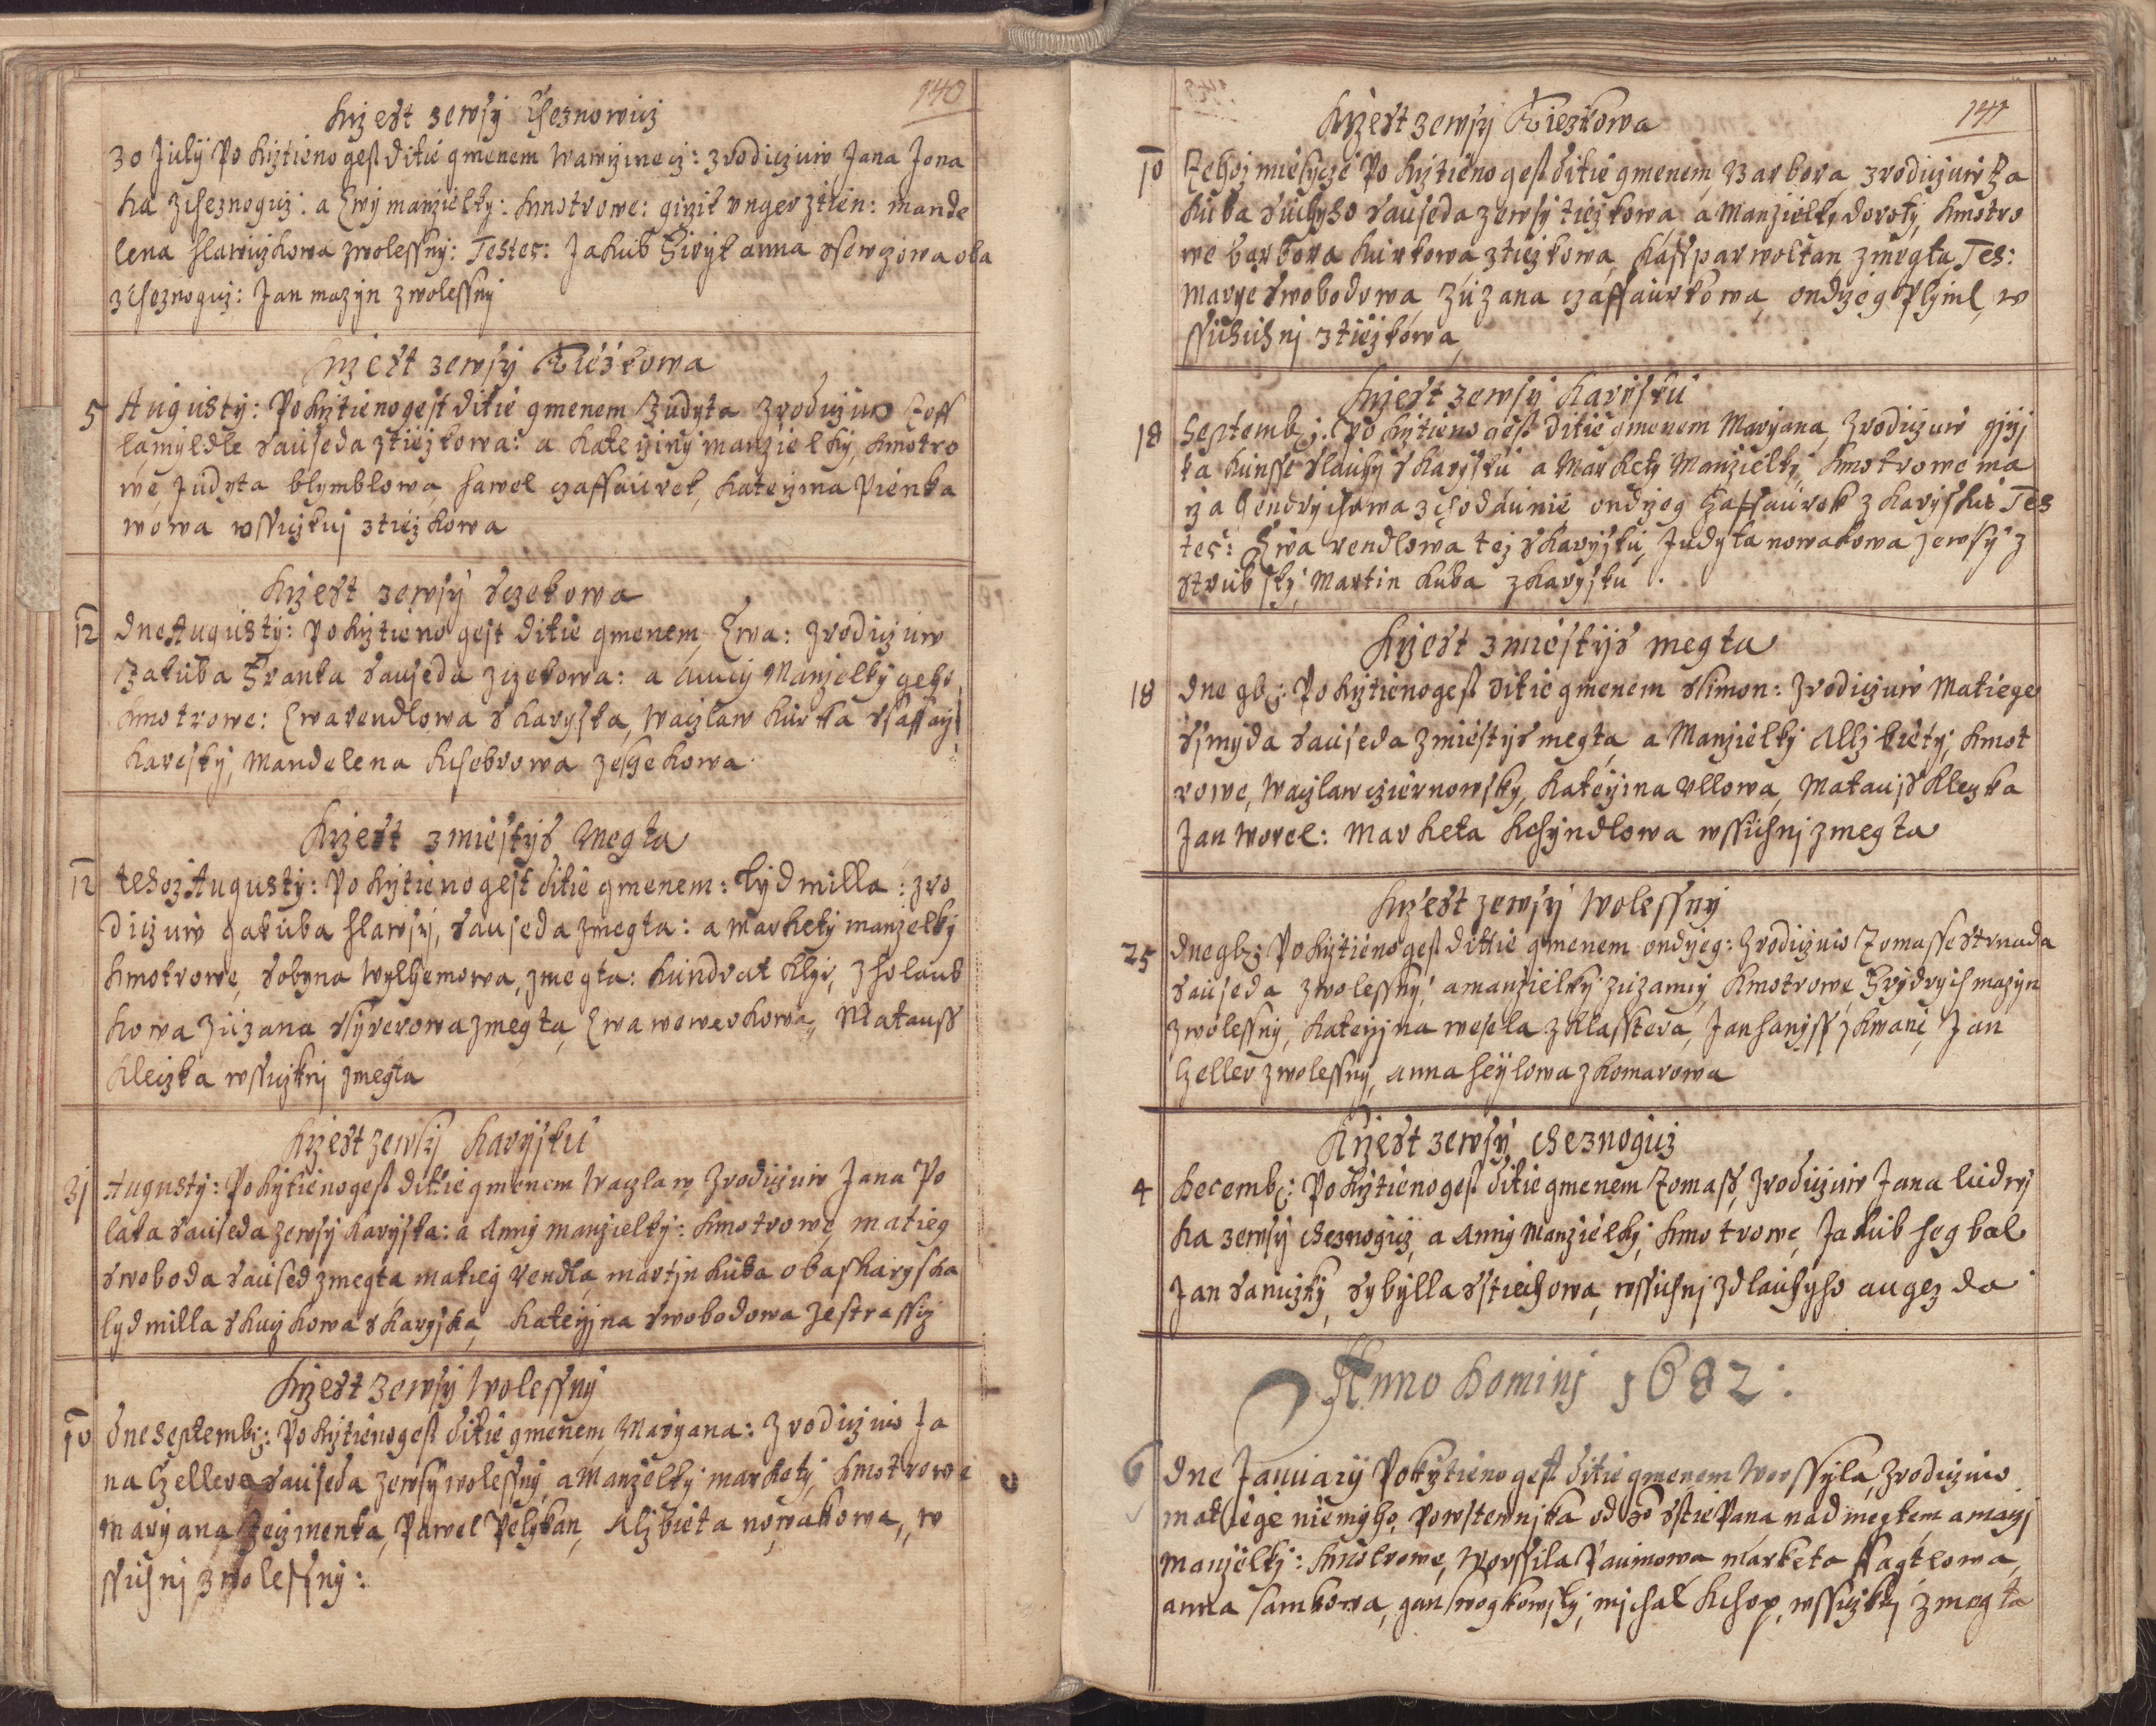 140
Krzest zewsy Cheznowicz
30 July Po Krztieno gest ditie gmenem Wawrzinecz: zrodiczuw Jana Jona
ka zcheznogicz: a Ewy manzielky: kmotrowe: girzik unger ztien: mande
lena hlawiczkowa zwolessny: Testes: Jakub Žiryk anna ssewczowa oba
zcheznoguz: Jan mazyn zwolessny
Krzest zewsy Tieżkowa
5 Augusty: Po krztieno gest ditie gmenem Judyta zrodiczuw
lamyldle sauseda ztiezkowa: a Katerziny manzielky, kmotro
we Judyta blymblowa hawel czassaurek, Katerzina Pienka
wowa wssiczkni ztiezkowa
Krzest zewsy sczekowa
12 dne Augusty: po krztieno gest ditie gmenem, Ewa: zrodiczuw
Jakuba Franka sauseda zczekowa: a Anny Manzelky geho
kmotrowe: Ewa rendlowa skaryska, Waczlaw kurka ssaffarz
karesky, Mandelena kusebrowa zesgekowa
Krzest zmiestys Megta
12 tehoz Augusty: Po krztieno gest ditie gmenem: lydmilla: zro
diczuw gakuba hlawsy, sauseda zmegta: a Markety manzelky
kmotrowe, sobyna Wylhemowa, zmegta: kundrat klyr, zholaub
kowa Zuzana styrerowa zmegta, Ewa wewerkowa, Matauss
kleczka wssiczknj zmegta
Krzest zewsy Karysku
31 Augusty: Po krztieno gest ditie gmenem Waczlaw zrodiczuw Jana Po
laka sauseda zewsy karyska: a Anny manzielky: kmotrowe matieg
swoboda saused zmegta, matieg rendla, martin kuba oba skaryska
lydmilla skuczkowa skaryska, Katerzjna swobodowa zestrassicz
Krzest zewsy Wolessny
10 dne Septembr: Po krztieno gest ditie gmenem Maryana: zrodiczuw Ja
na Gellera sauseda zewsy wolessny, a Manzelky markety, kmotrowe
maryana Pawel Pelykan, Alzbieta nowakowa, w
ssichni zwolessny:
141
Krzest zewsy Tiezkowa
10 Tehoz miesycze Po krztieno gest ditie gmenem, Barbora, zrodiczuw
kuba suchyho sauseda zewsy tiezkowa a Manzielky doroty, kmotro
we barbora kurkowa ztiezkowa, kasspar woltan zmegta, Tes:
marye swobodowa, zuzana czassaurkowa, ondrzeg Plyml, w
ssichnj ztiezkowa,
Krzest zewsy Karysku
18 Septembr: po krztieno gest ditie gmenem Maryana, zrodiczuw girzj
ka kunsse slauhy skarysku a Markety Manzielky kmotrowe ma
rza Gendrychowa zchodaunie ondrzeg czassaurek zkaryskue Tes
tes: Ewa rendlowa tez skarysku, Judyta nowakowa zewsy z
strubsky, Martin kuba zkarysku.
Krzest zmiestys megta
18 dne 9br: Po krztieno gest ditie gmenem simon: zrodiczuw Matiege
ssmyda sauseda zmiestys megta, a Manzielky Alzbiety, kmot
rowe, Waczlaw cziernowsky, Katerzina ullowa, Matauss kleczka
Jan Worel: Marketa kchyndlowa wssichnj zmegta
Krzest zewsy Wolessny
25 dne 9br: Po krztieno gest dittie gmenem ondrzeg: zrodiczuw Tomasse strnada
sauseda zwolessny, a manzielky zuzanny, kmotrowe, Frydrych mazyn
zwolessny, Katerzjna wesela zklasstera, Jan hanyss zkwani, Jan
Geller zwolessny, Anna heylowa zkomarowa
Krzest zewsy cheznoguz
4 Decembr: Po krztieno gest ditie gmenem Tomass, zrodiczuw Jana ludwj
ka zewsy cheznogicz, a Anny Manzielky, kmotrowe, Jakub hegbal
Jan sanuzky, sybylla sstiechowa, wssichnj zdlauhyho augezda
Anno Dominj 1682:
6 dne January Pokrztieno gest ditie gmenem Worssyla, zrodiczuw
matiege niemyho, powstewnjka od S° sstiepana nad megtem a marzj
manzelky: kmotrowe, Worssila Paumowa marketa ssagtlowa,
anna samkowa, gan swogkowsky, mjchal kchop, wssiczknj zmegta